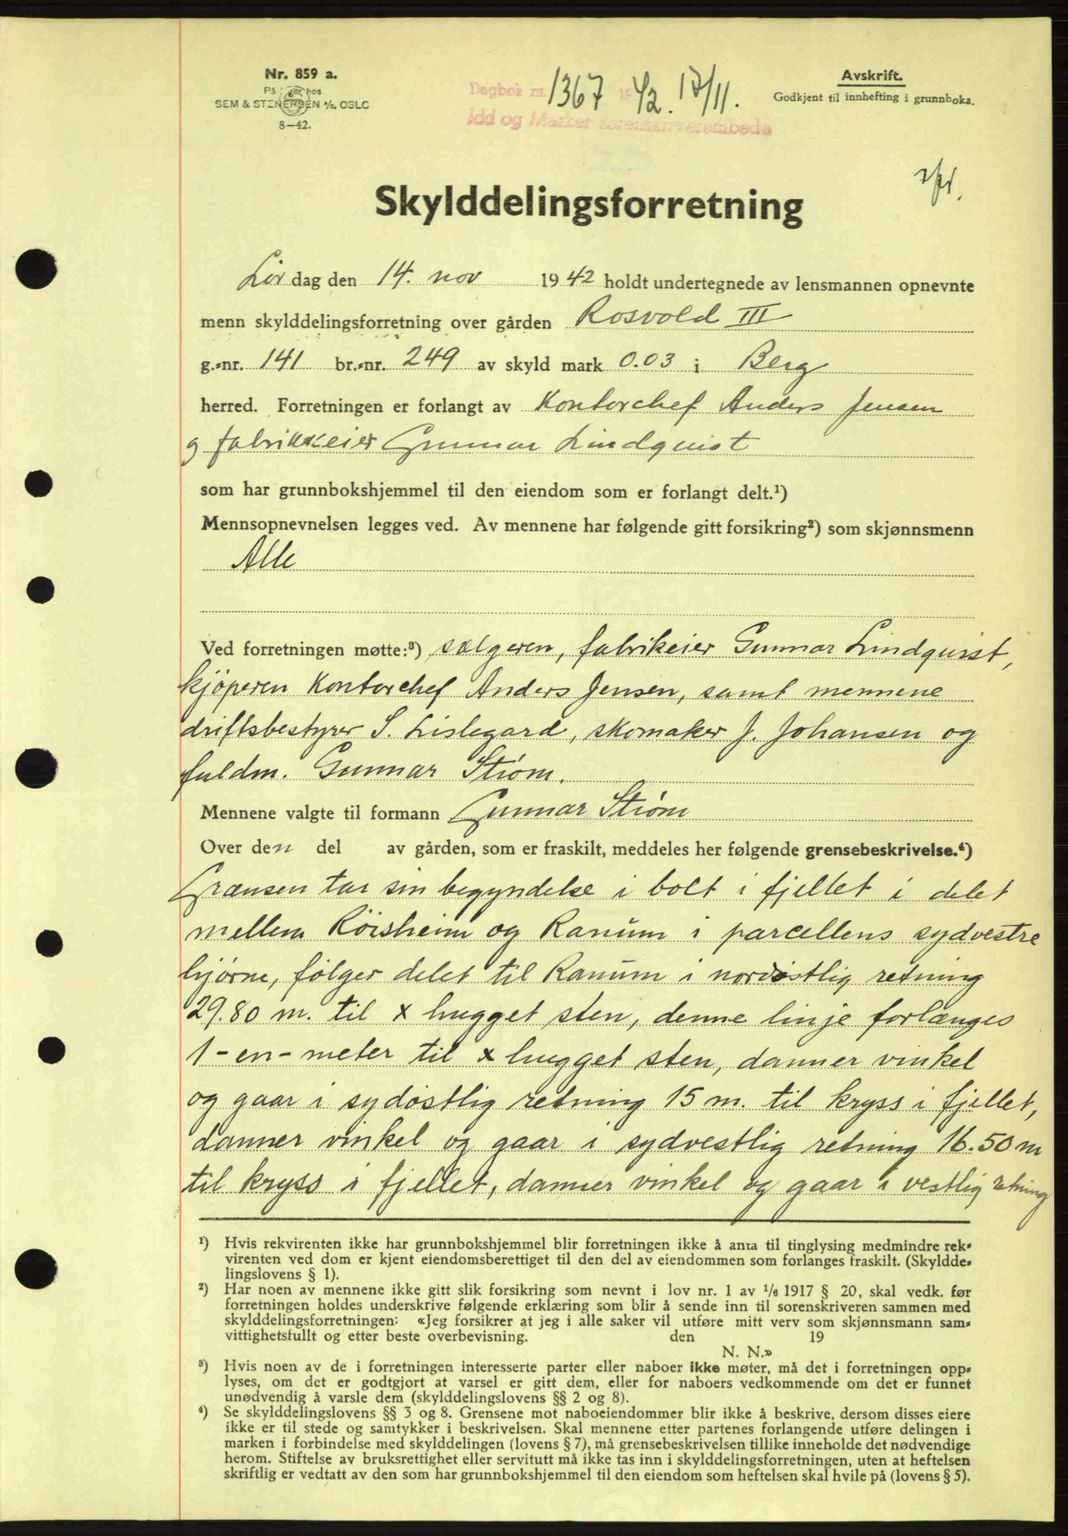 Nr. 859 a.
På lager hos
SEM & STENERSEN A/S, OSLO
8—42.
Dagbok nr. 1367 1942. 17/11.
Idd og Marker sorenskriverembede
Avskrift.
Godkjent til innhefting i grunnboka.
Skylddelingsforretning
Lør dag den 14. nov 1942 holdt undertegnede av lensmannen opnevnte
menn skylddelingsforretning over gården Rosvold III
g.-nr. 141 br.-nr. 249 av skyld mark 0.03 i Berg
herred. Forretningen er forlangt av Kontorchef Anders Jensen
og fabrikkeier Gunnar Lindquist
som har grunnbokshjemmel til den eiendom som er forlangt delt.¹)
Mennsopnevnelsen legges ved. Av mennene har følgende gitt forsikring²) som skjønnsmenn
Alle
Ved forretningen møtte:³) sælgeren, fabrikeier Gunnar Lindquist,
kjøperen Kontorchef Anders Jensen, samt mennene
driftsbestyrer S. Lislegard, skomaker J. Johansen og
fuldm. Gunnar Strøm.
Mennene valgte til formann Gunnar Strøm
Over den del av gården, som er fraskilt, meddeles her følgende grensebeskrivelse.⁴)
Grænsen tar sin begyndelse i bolt i fjellet i delet
mellem Röisheim og Ranum i parcellens sydvestre
hjørne, følger delet til Ranum i nordöstlig retning
29.80 m. til x hugget sten, denne linje forlænges
1-en-meter til x hugget sten, danner vinkel
og gaar i sydöstlig retning 15 m. til kryss i fjellet,
danner vinkel og gaar i sydvestlig retning 16.50 m
til kryss i fjellet, danner vinkel og gaar i vestlig retning
¹) Hvis rekvirenten ikke har grunnbokshjemmel blir forretningen ikke å anta til tinglysing medmindre rek-
virenten ved dom er kjent eiendomsberettiget til den del av eiendommen som forlanges fraskilt. (Skyldde-
lingslovens § 1).
²) Har noen av mennene ikke gitt slik forsikring som nevnt i lov nr. 1 av 1/6 1917 § 20, skal vedk. før
forretningen holdes underskrive følgende erklæring som blir å sende inn til sorenskriveren sammen med
skylddelingsforretningen: «Jeg forsikrer at jeg i alle saker vil utføre mitt verv som skjønnsmann sam-
vittighetsfullt og etter beste overbevisning. den 19
N. N.»
³) Hvis noen av de i forretningen interesserte parter eller naboer ikke møter, må det i forretningen opp-
lyses, om det er godtgjort at varsel er gitt dem, eller for naboers vedkommende om det er funnet
unødvendig å varsle dem (skylddelingslovens §§ 2 og 8).
⁴) Se skylddelingslovens §§ 3 og 8. Grensene mot naboeiendommer blir ikke å beskrive, dersom disses eiere
ikke er til stede og samtykker i beskrivelsen. Skal mennene etter partenes forlangende utføre delingen i
marken i forbindelse med skylddelingen (lovens § 7), må grensebeskrivelsen tillike inneholde det nødvendige
herom. Stiftelse av bruksrettighet eller servitutt må ikke tas inn i skylddelingsforretningen, uten at heftelsen
skriftlig er vedtatt av den som har grunnbokshjemmel til den eiendom som heftelsen skal hvile på (lovens § 5).